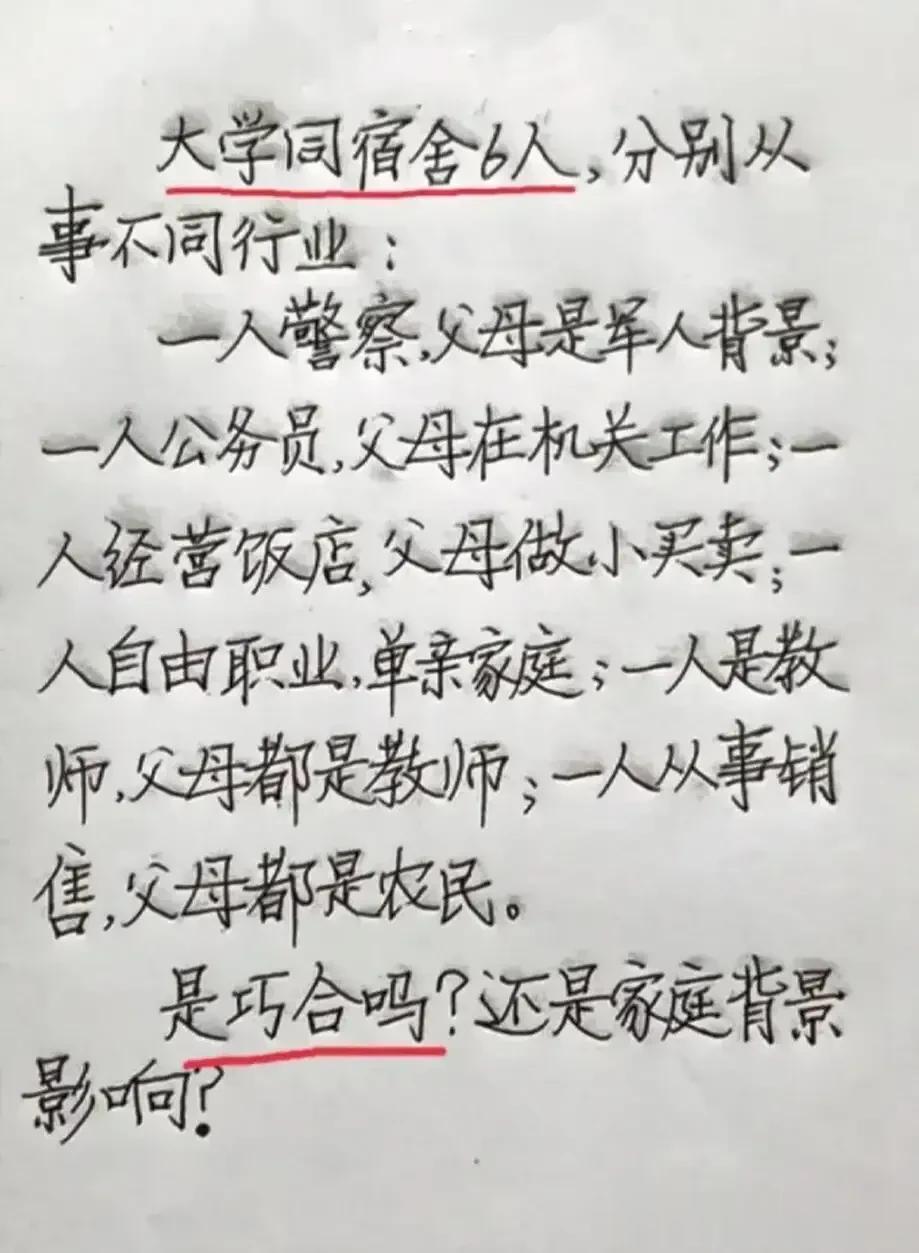 大学同宿舍6人,分别从
事不同行业:
一人警察,父母是军人背景;
一人公务员,父母在机关工作;一
人经营饭店,父母做小买卖;一
人自由职业,单亲家庭;一人是教
师,父母都是教师;一人从事销
售,父母都是农民。
是巧合吗?还是家庭背景
影响?